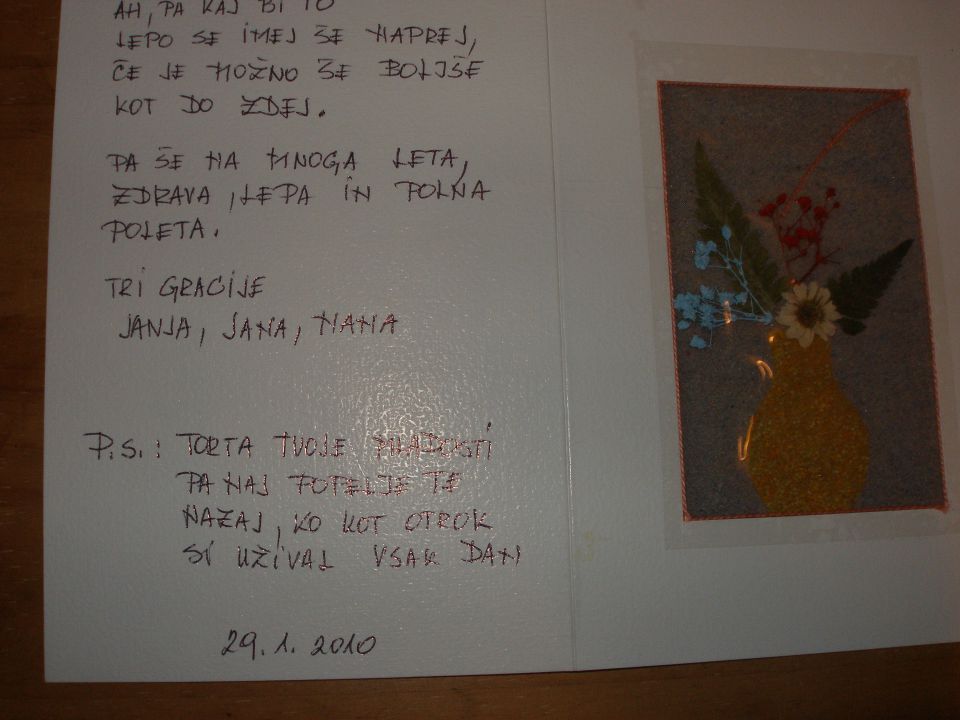 AH, PA KAJ BI TO
LEPO SE IMEJ ŠE NAPREJ,
ČE JE MOŽNO ŠE BOLJŠE
KOT DO ZDEJ.
PA ŠE NA MNOGA LETA,
ZDRAVA, LEPA IN POLNA
POLETA.
TRI GRACIJE
JANJA, JANA, NANA
P.S.: TORTA TVOJE MLADOSTI
PA NAJ POPELJE TE
NAZAJ, KO KOT OTROK
SI UŽIVAL VSAK DAN
29.1.2010